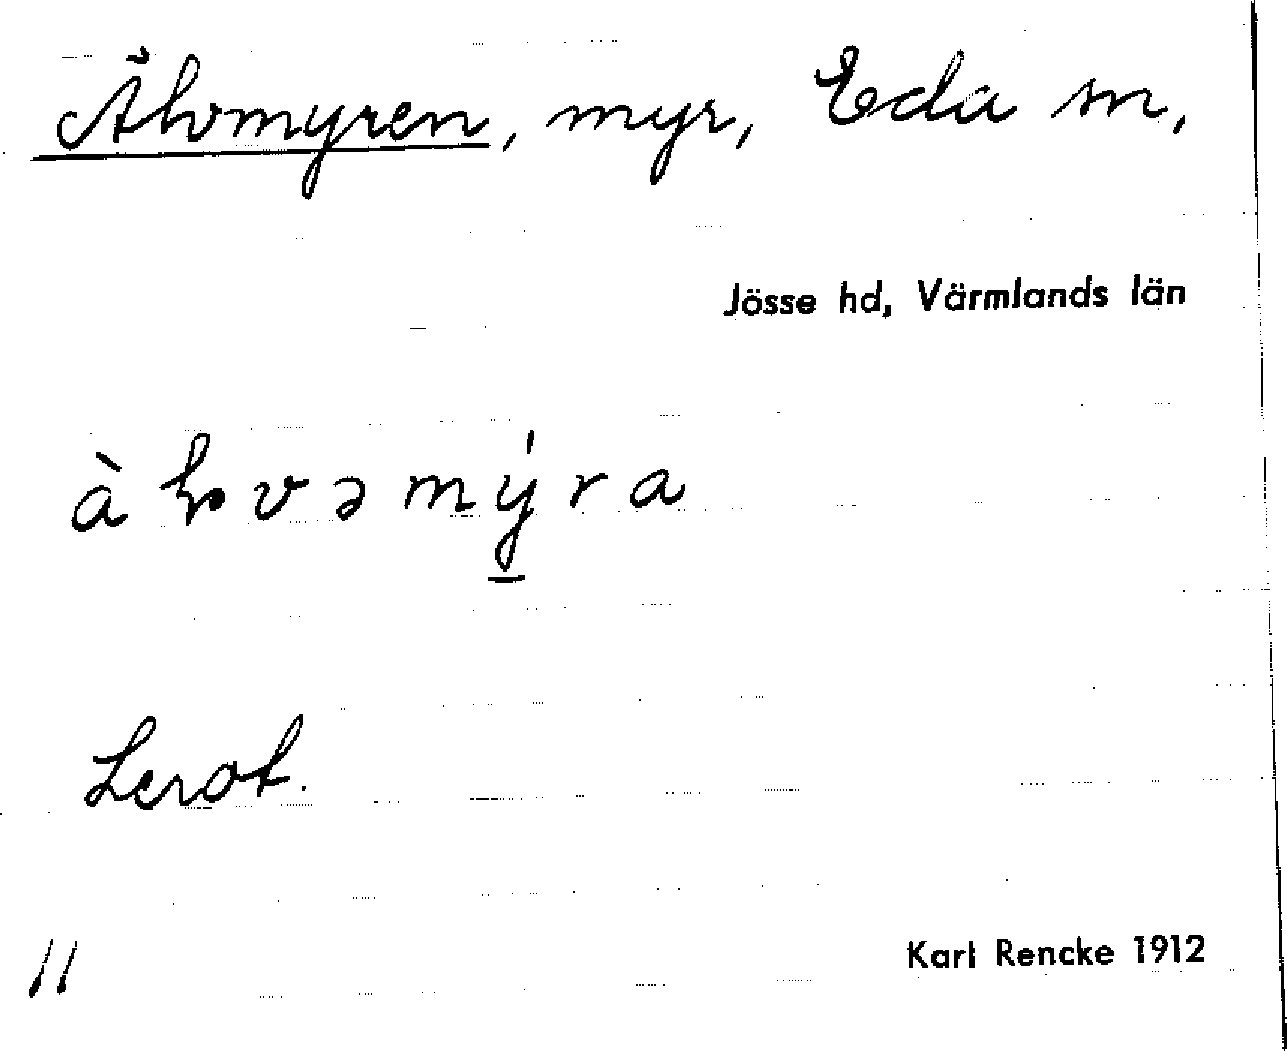 Älvmyren, myr, Eda sn,
Jösse hd, Värmlands län
Lerot.
11
Karl Rencke 1912